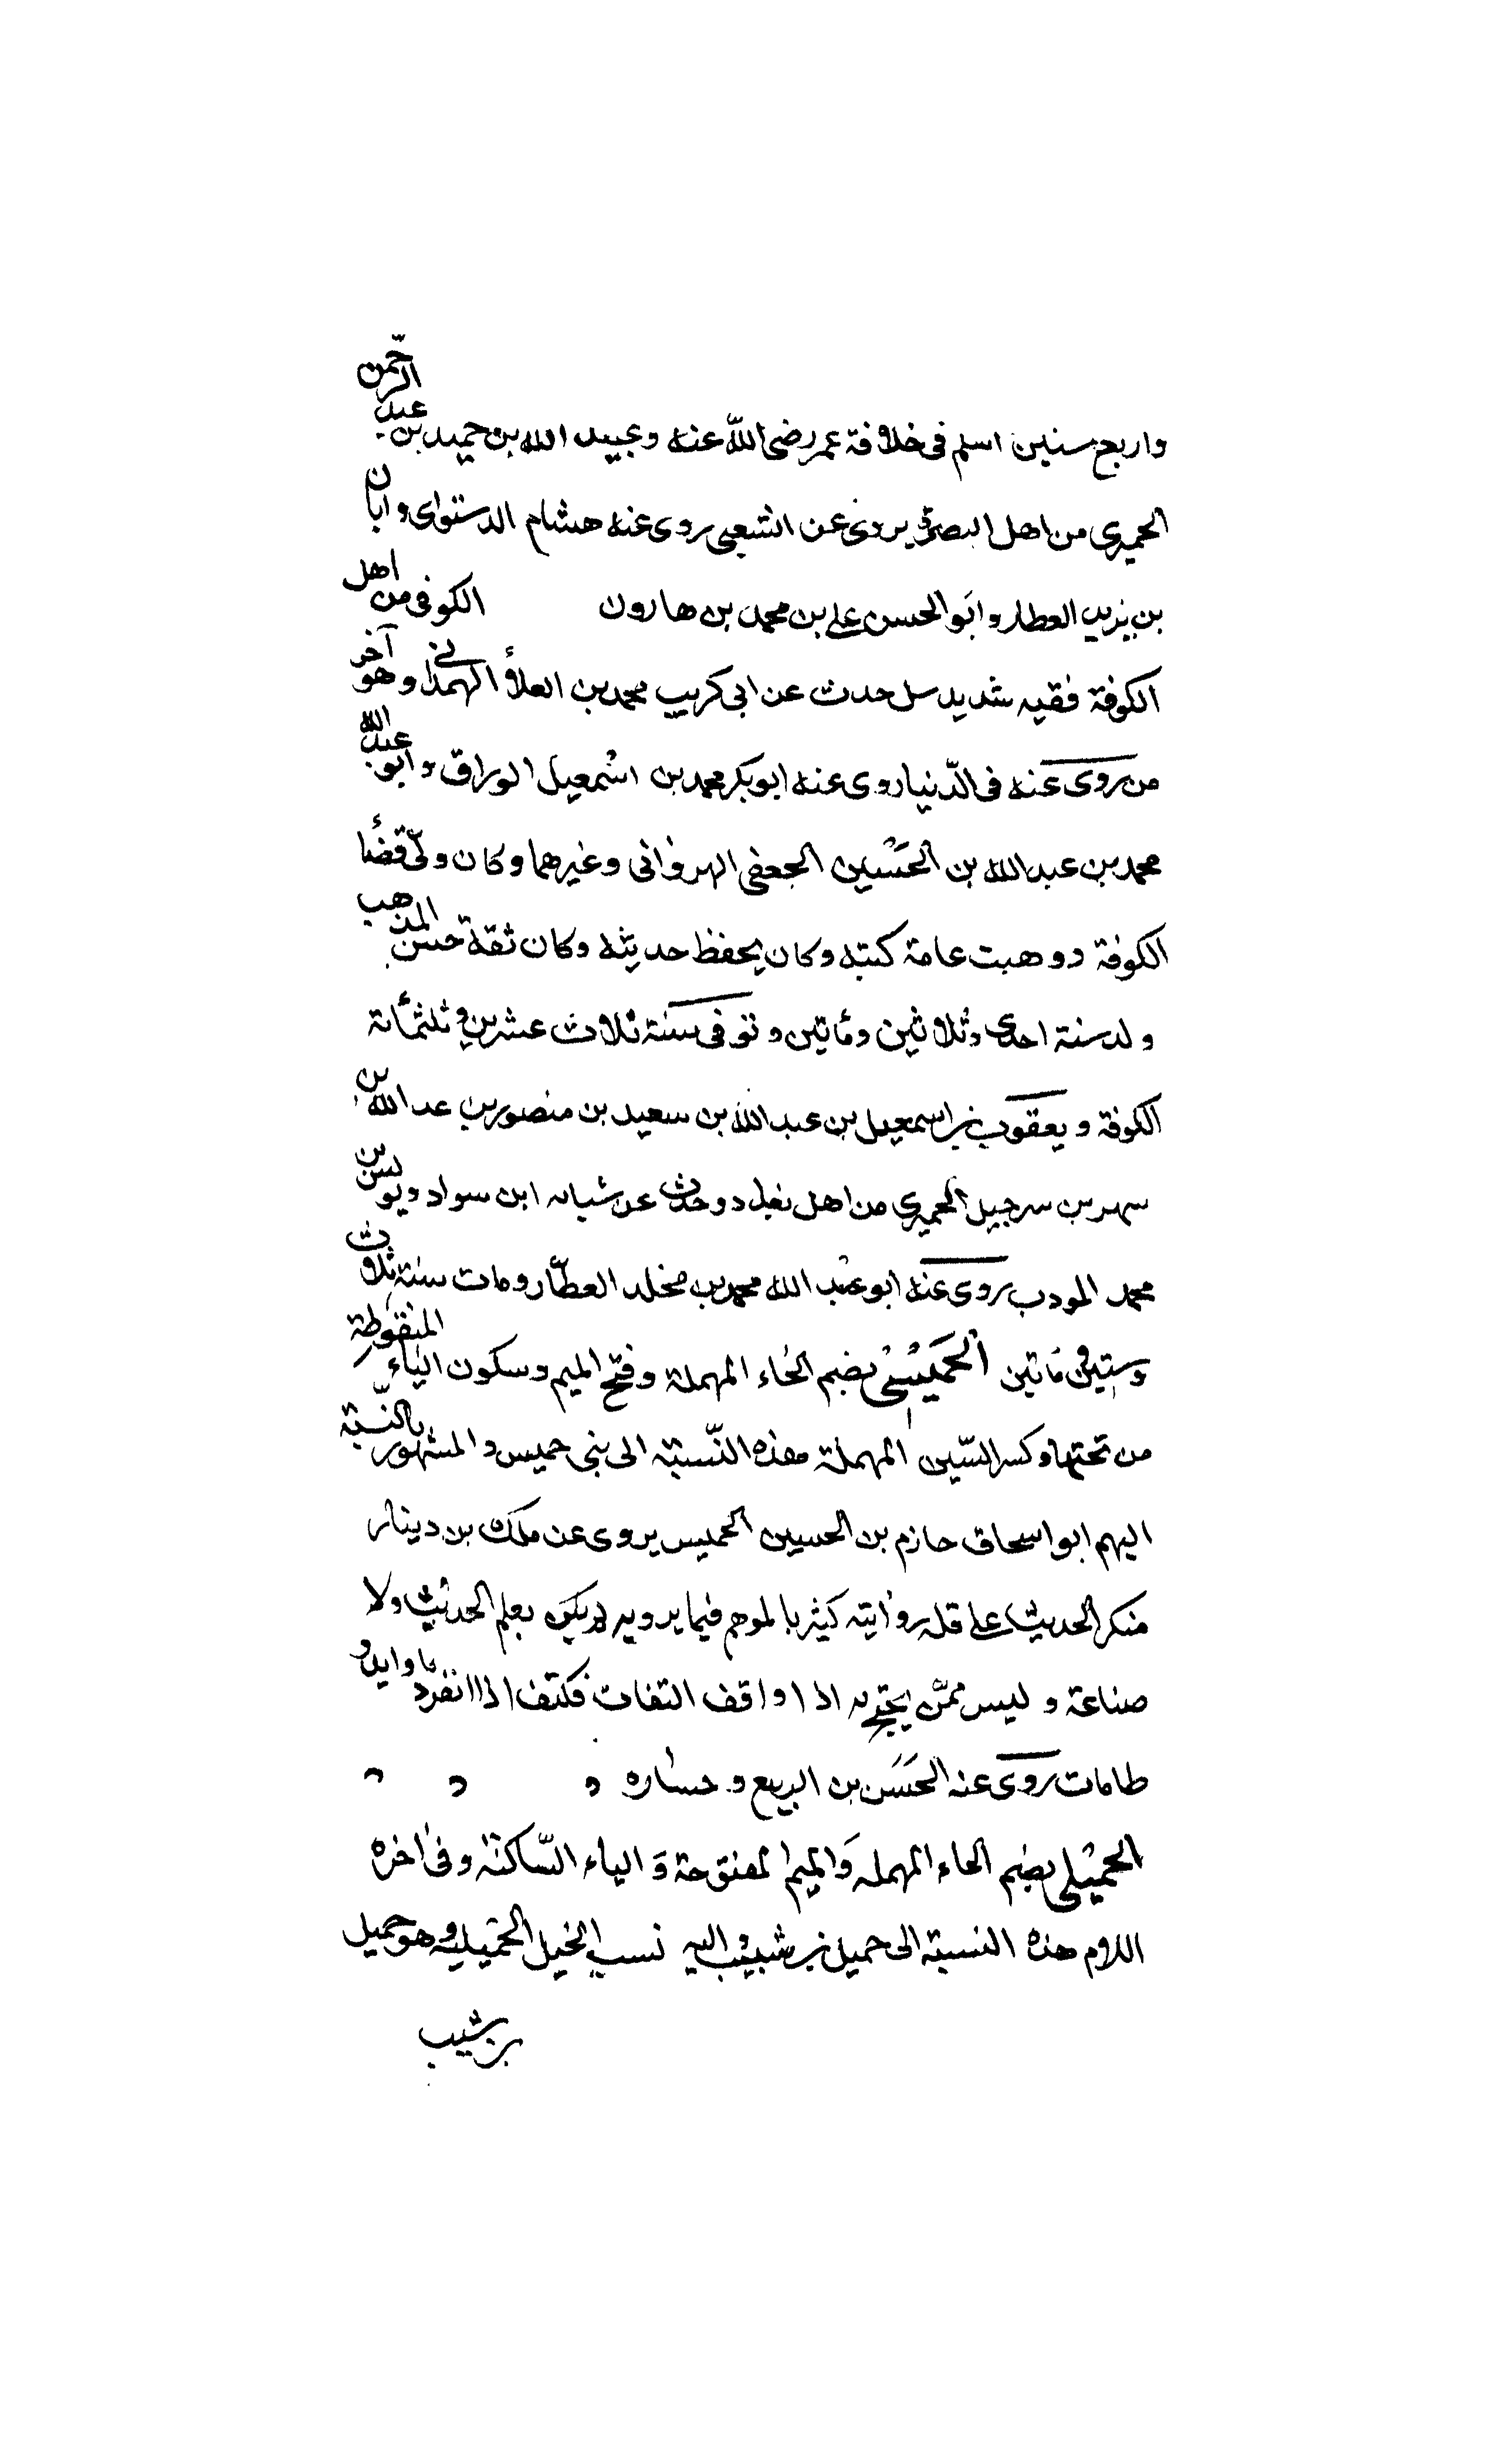 واربع سنين اسلم فى خلافة عمر رضى الله عنه وعبيد الله بن حميد بن عبد الرحمن
الحميرى من اهل البصرة يروى عن الشعبى روى عنه هشام الدستواى وابان
بن يزيد العطار وابو الحسن على بن محمد بن هارون الكوفى من اهل
الكوفة فقيه شديد حدث عن ابى كريب محمد بن العلاء الهمدانى وهو آخر
من روى عنه فى الدّنيا روى عنه ابو بكر محمد بن اسمعيل الوراق و ابو عبد الله
محمد بن عبد الله بن الحسين الجعفى الهروانى وغيرهما وكان ولّى قضا
الكوفة دوهبت عامة كتبه وكان يحفظ حديثه وكان ثقة حسن المذهب
ولد سنة احدى وثلاثين ومأتين وتوفى سنة ثلاث عشرين وثلثمائة
الكوفة ويعقوب بن اسمعيل بن عبد الله بن سعيد بن منصور بن عبد الله بن
سهر بن سرجيل الحميرى من اهل بغداد وحدث عن شبابه ابن سواد ويونس بن
محمد المودب روى عنه ابو عبد الله محمد بن مخلد العطّار ومات سنة ثلاث
وستين ومأتين الحُمَيْسِى بضم الحاء المهملة وفتح الميم وسكون الياء المنقوطة
من تحتها وكسر السّين المهملة هذه النّسبة الى بنى حميس و المشهور بالنّسبة
اليهم ابو اسحاق حازم بن الحسين الحميس يروى عن ملك بن دينار
منكر الحديث على قله روايته كثير بالموهم فيما يرويه لم يكن يعلم الحديث ولا
صناعة و ليس ممّن يحتج به اذا واقف الثقات فكيف اذا انفرد باوابد و
طامات روى عنه الحَسَن بن الربيع و حساره
الحميلى بضم الحاء المهمله وَالميم المفتوحة وَ الياء السّاكنة وفى اخره
اللام هذه النسبة الى حميل بن شبيب واليه نسب الخيل الحميلية وهو حميل
بن شبيب